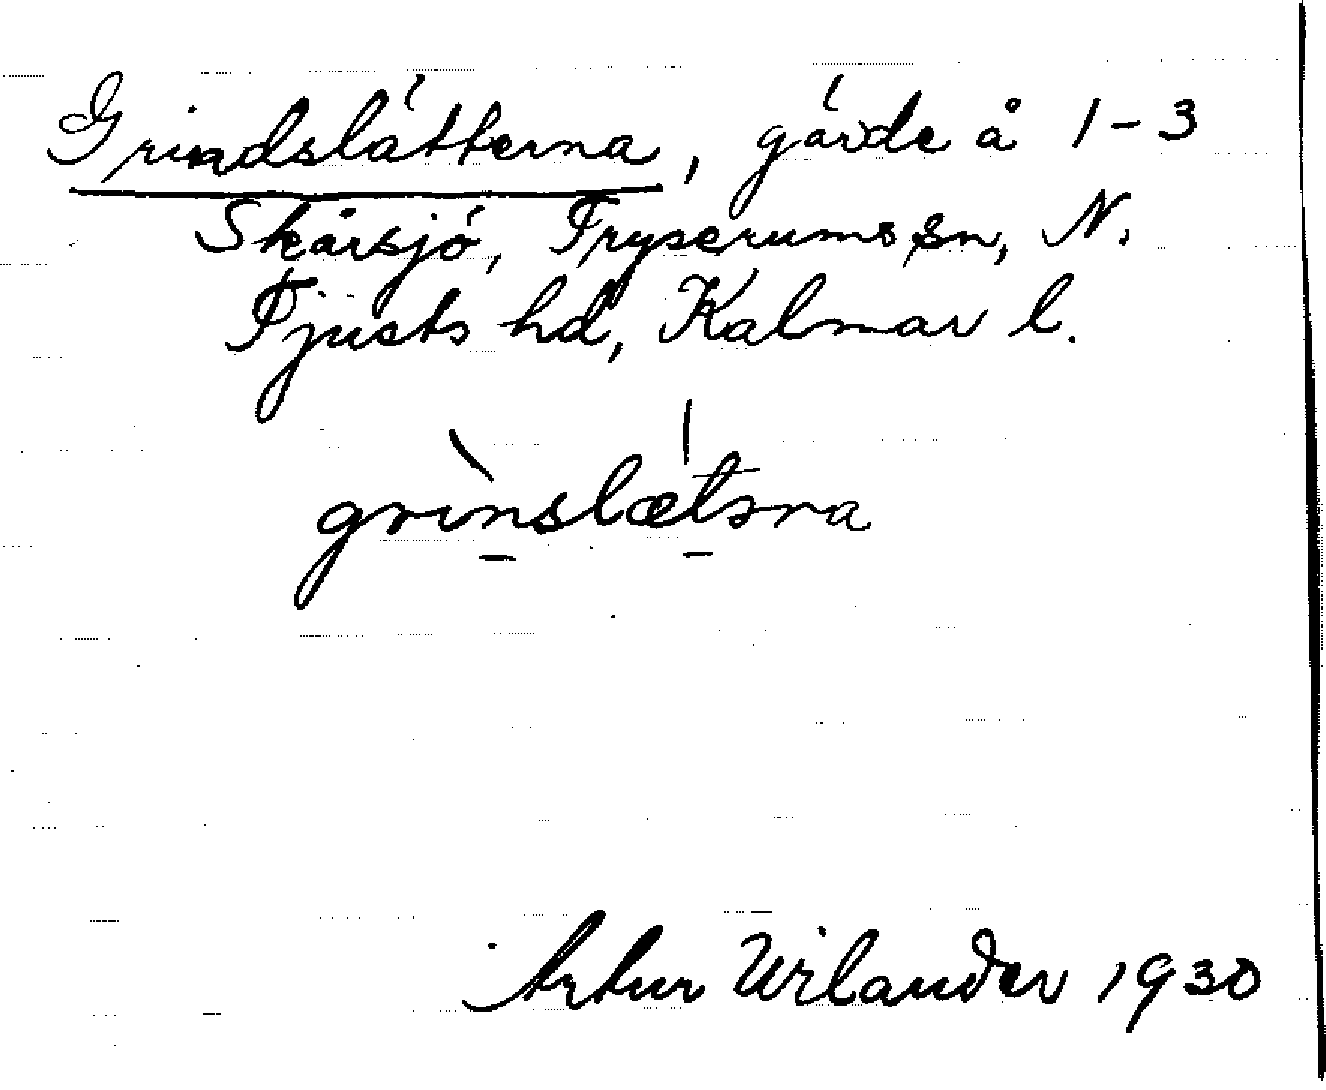 Grindslätterna, gärde å 1-3
Skårsjö, Tryserums sn, N.
Tjusts hd, Kalmar l.
grìnslætəɹna
Artur Wilander 1930